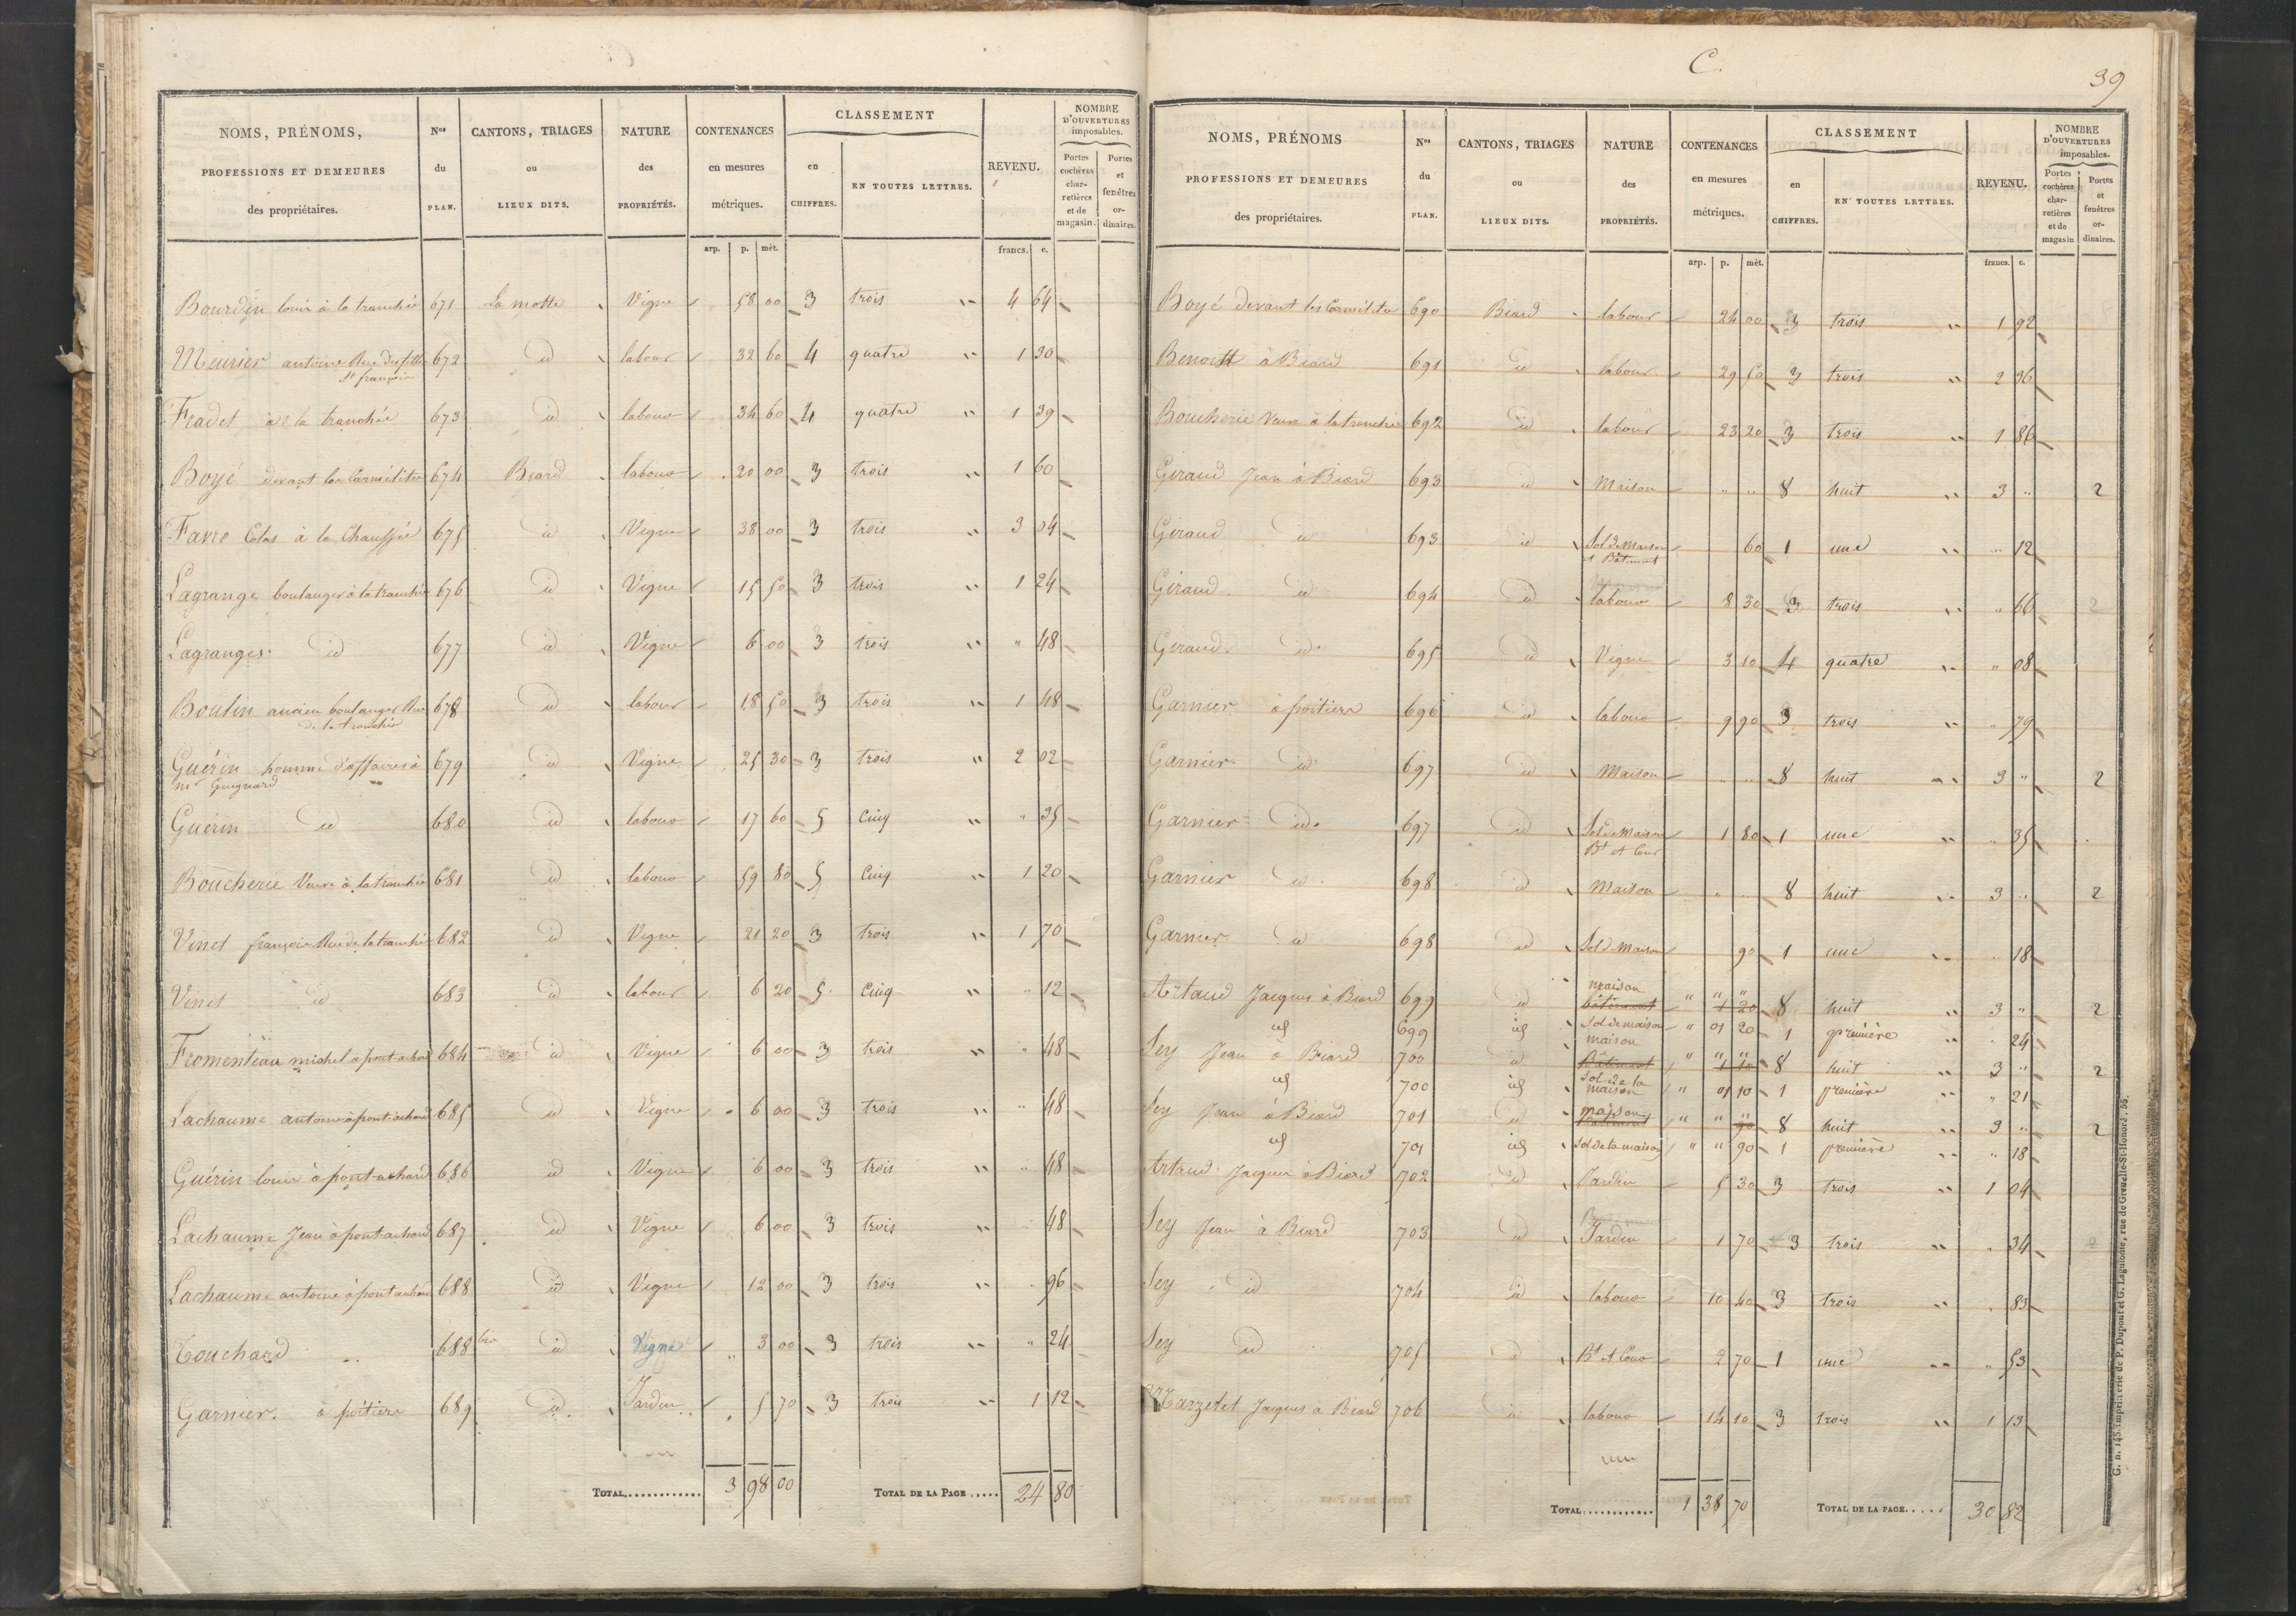 NOMS, PRÉNOMS, PROFESSIONS ET DEMEURES des propriétaires. | Nos du PLAN. | CANTONS, TRIAGES ou LIEUX DITS. | NATURE des PROPRIÉTÉS. | CONTENANCES en mesures métriques. | CLASSEMENT en CHIFFRES. | EN TOUTES LETTRES. | REVENU. | NOMBRE D'OUVERTURES imposables. Portes cochères charretières et de magasin. | Portes et fenêtres ordinaires.
arp. p. mèt. francs. c.
Bourdin louis à la tranchée 671 La motte Vigne 58 00 3 trois " 4 64
Meurier antoine Rue des filles St françois 672 id labour 32 60 4 quatre " 1 30
Fradet à la tranchée 673 id labour 34 60 4 quatre " 1 39
Boyé devant les Carmélites 674 Biard labour 20 00 3 trois " 1 60
Favre Colas à la Chaussée 675 id Vigne 38 00 3 trois " 3 04
Lagrange boulanger à la tranchée 676 id Vigne 15 50 3 trois " 1 24
Lagranges id 677 id Vigne 6 00 3 trois " " 48
Boutin ancien boulanger Rue de la tranchée 678 id labour 18 50 3 trois " 1 48
Guérin homme d'affaires à mr Guignard 679 id Vigne 25 30 3 trois " 2 02
Guérin id 680 id labour 17 60 5 Cinq " " 35
Boucherie Veuve à la tranchée 681 id labour 59 80 5 Cinq " 1 20
Vinet françois Rue de la tranchée 682 id Vigne 21 20 3 trois " 1 70
Vinet id 683 id labour 6 20 5 Cinq " " 12
Fromenteau michel à pont-achard 684 id Vigne 6 00 3 trois " " 48
Lachaume antoine à pont-achard 685 id Vigne 6 00 3 trois " " 48
Guérin louis à pont-achard 686 id Vigne 6 00 3 trois " " 48
Lachaume Jean à pont-achard 687 id Vigne 6 00 3 trois " " 48
Lachaume antoine à pont achard 688 id Vigne 12 00 3 trois " " 96
Touchard 688 bis id Vigne " 3 00 3 trois " " 24
Garnier à poitiers 689 id Jardin 5 70 3 trois " 1 12
TOTAL............ 3 98 00 TOTAL DE LA PAGE ..... 24 80
C.
39
NOMS, PRÉNOMS PROFESSIONS ET DEMEURES des propriétaires. | Nos du PLAN. | CANTONS, TRIAGES ou LIEUX DITS. | NATURE des PROPRIÉTÉS. | CONTENANCES en mesures métriques. | CLASSEMENT en CHIFFRES. | EN TOUTES LETTRES. | REVENU. | NOMBRE D'OUVERTURES imposables. Portes cochères charretières et de magasin | Portes et fenêtres ordinaires.
arp. p. mèt. francs. c.
Boyé devant les Carmélites 690 Biard labour 24 00 3 trois " 1 92
Benoitt à Biard 691 id labour 29 50 3 trois " 2 36
Boucherie Veuve à la tranchée 692 id labour 23 20 3 trois " 1 86
Giraud Jean à Biard 693 id Maison " " 8 huit " 3 " 2
Giraud id 693 id Sol de Maison et Bâtiment 60 1 une " " 12
Giraud id 694 id labour 8 30 3 trois " " 66 2
Giraud id 695 id Vigne 3 10 4 quatre " " 08
Garnier à poitiers 696 id labour 9 90 3 trois " " 79
Garnier id 697 id Maison " " 8 huit " 3 " 2
Garnier id 697 id Sol de Maison Bt et Cour 1 80 1 une " " 35
Garnier id 698 id Maison " " 8 huit " 3 " 2
Garnier id 698 id Sol de Maison 90 1 une " " 18
Artaud Jacques à Biard 699 id maison bâtiment " " " 1 20 8 huit " 3 " 2
id 699 id Sol de maison " 01 20 1 première " " 24
Sey Jean à Biard 700 id maison Bâtiment " " " 1 10 8 huit " 3 " 2
id 700 id Sol de la maison " 01 10 1 première " " 21
Sey Jean à Biard 701 id maison Bâtiment " " " 90 8 huit " 3 " 2
id 701 id Sol de la maison " " 90 1 première " " 18
Artaud Jacques à Biard 702 id Jardin 5 30 3 trois " 1 04
Sey Jean à Biard 703 id Jardin 1 70 3 trois " " 34 2
Sey id 704 id labour 10 40 3 trois " " 83
Sey id 705 id Bt et Cour 2 70 1 une " " 53
Marzetet Jacques à Biard 706 id labour 14 10 3 trois " 1 13
TOTAL............ 1 38 70 TOTAL DE LA PAGE..... 30 82
G. n. 145. Imprimerie de P. Dupont et G. Laguionie, rue de Grenelle-St-Honoré, 55.